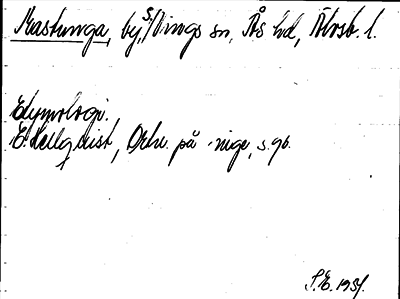 Krastunga, by, S. Vings sn, Ås hd, Älvsb. l.
Etymologi.
E. Hellquist, Ortn. på -inge, s. 96.
S.E. 1931.